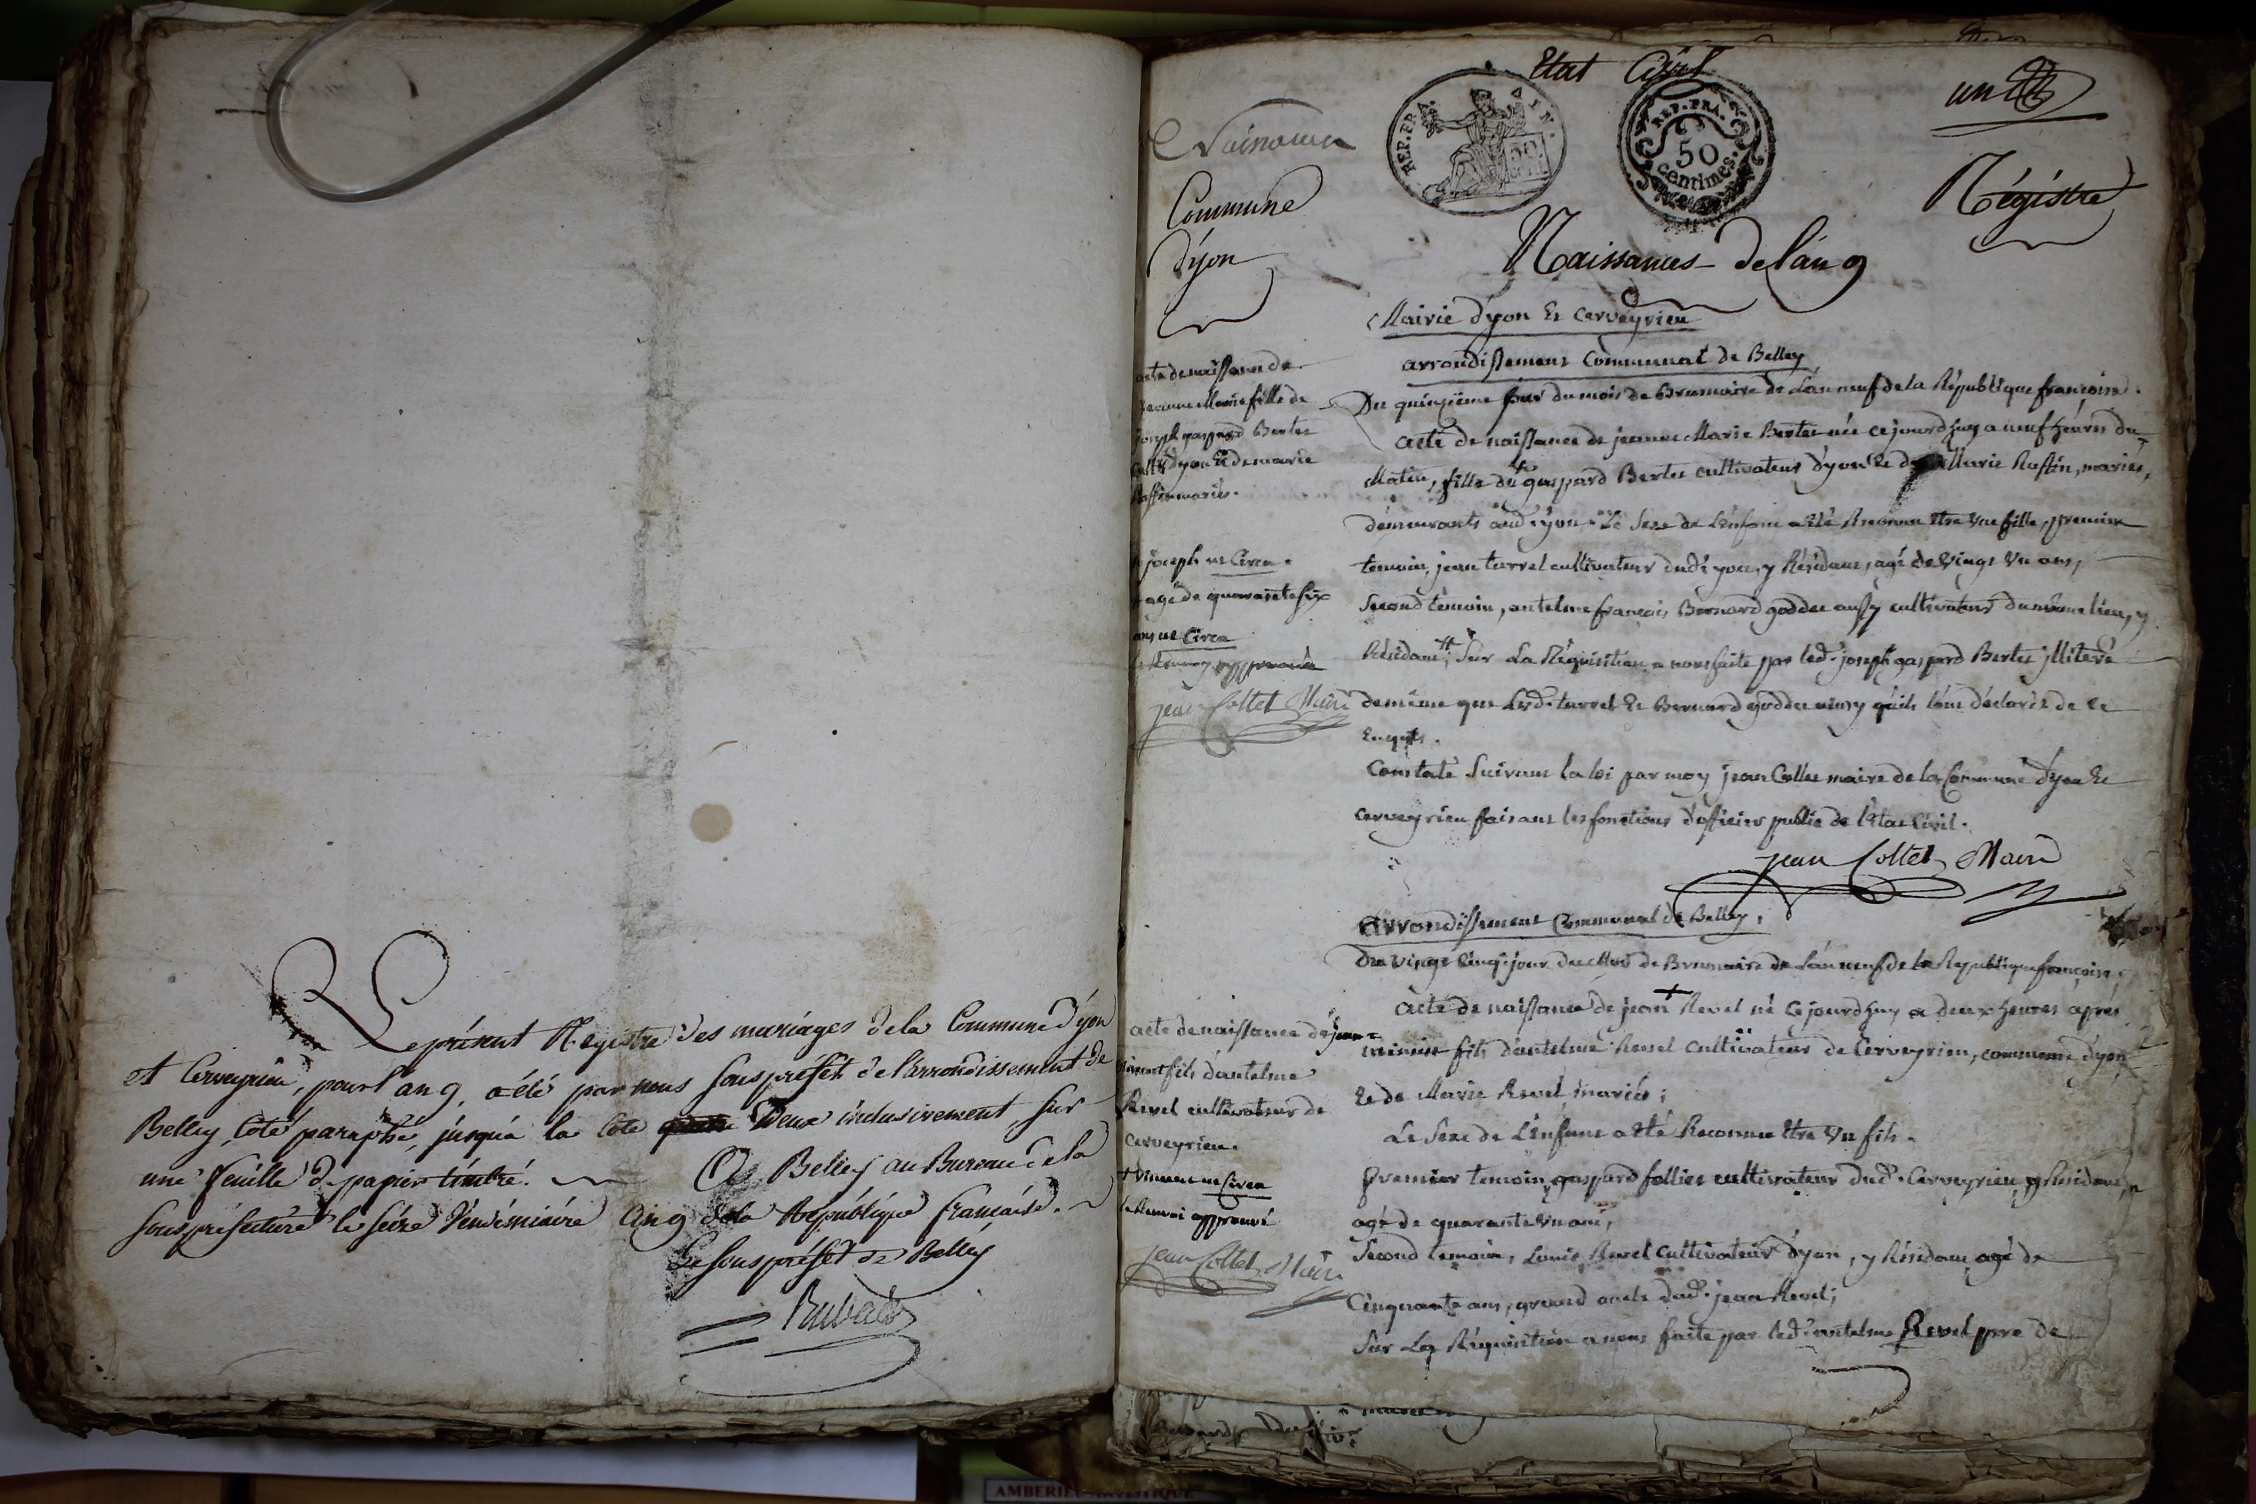 Le présent Registre des mariages de la Commune d'yon
et Cerveyrieu, pour l'an 9, a été par nous sous préfet de l'arrondissement de
Belley, coté paraphé, jusqu'a la cote deux inclusivement, sur
une feuille de papier timbré. A Belley au Bureau de la
sous préfecture le seize Vendémiaire an 9 de la République française.
Le sous préfet de Belley
Etat Civil
REP. FRA. AIN.
REP. FRA.
50
centimes.
un
Naissances
Commune
d'yon
Régistre
Naissances de l'an 9
Mairie d'yon Et Cerveyrieu
arrondissement Communal de Belley
Du quinzième jour du mois de Brumaire de L'an neuf de la République françoise.
acte de naissance de jeanne Marie Bertet née cejourd'huy a neuf heures du
Matin, fille de gaspard Bertet cultivateur d'yon Et de Marie Roffin, mariés,
demeurants aud. yon. Le Sexe de L'Enfant a Eté Reconnu Etre Une fille, premier
temoin, jean turrel cultivateur dud. yon, y Résidant, agé de Vingt Un ans,
Second témoin, antelme françois Bernard goddet aussy cultivateur du même lieu, y
Résidant, Sur La Réquisition a nous faite par led. joseph gaspard Bertet illiteré
de même que Lesd. turrel Et Bernard goddet ainsy qu'ils l'ont déclaré de ce
Enquis.
Constaté Suivant la loi par moy jean Collet maire de la Commune d'yon Et
Cerveyrieu faisant les fonctions d'officier public de l'Etat Civil.
jean Collet Maire
acte de naissance de
jeanne Marie fille de
joseph gaspard Bertet
cultr. d'yon Et de marie
Roffin mariés.
joseph ut Circa.
agé de quarante six
ans ut Circa
le Renvoy approuvé
jean Collet Maire
arrondissement Communal de Belley.
Du Vingt Cinq jour du Mois de Brumaire de L'an neuf de la République françoise,
acte de naissance de jean Revel né Cejourd'huy a deux heures après
minuit fils d'antelme Revel Cultivateur de Cerveyrieu, commune d'yon
Et de Marie Revel mariés;
Le Sexe de L'Enfant a Eté Reconnu Etre Un fils.
premier temoin, gaspard folliet cultivateur dud. Cerveyrieu y Résidant,
agé de quarante Un ans,
Second temoin, Louis Revel Cultivateur d'yon, y Résidant agé de
Cinquante ans, grand oncle dud. jean Revel;
Sur La Réquisition a nous faite par led. antelme Revel pere de
acte de naissance de jean
vincent fils d'antelme
Revel cultivateur de
Cerveyrieu.
+ Vincent ut Circa
le Renvoi approuvé
jean Collet Maire